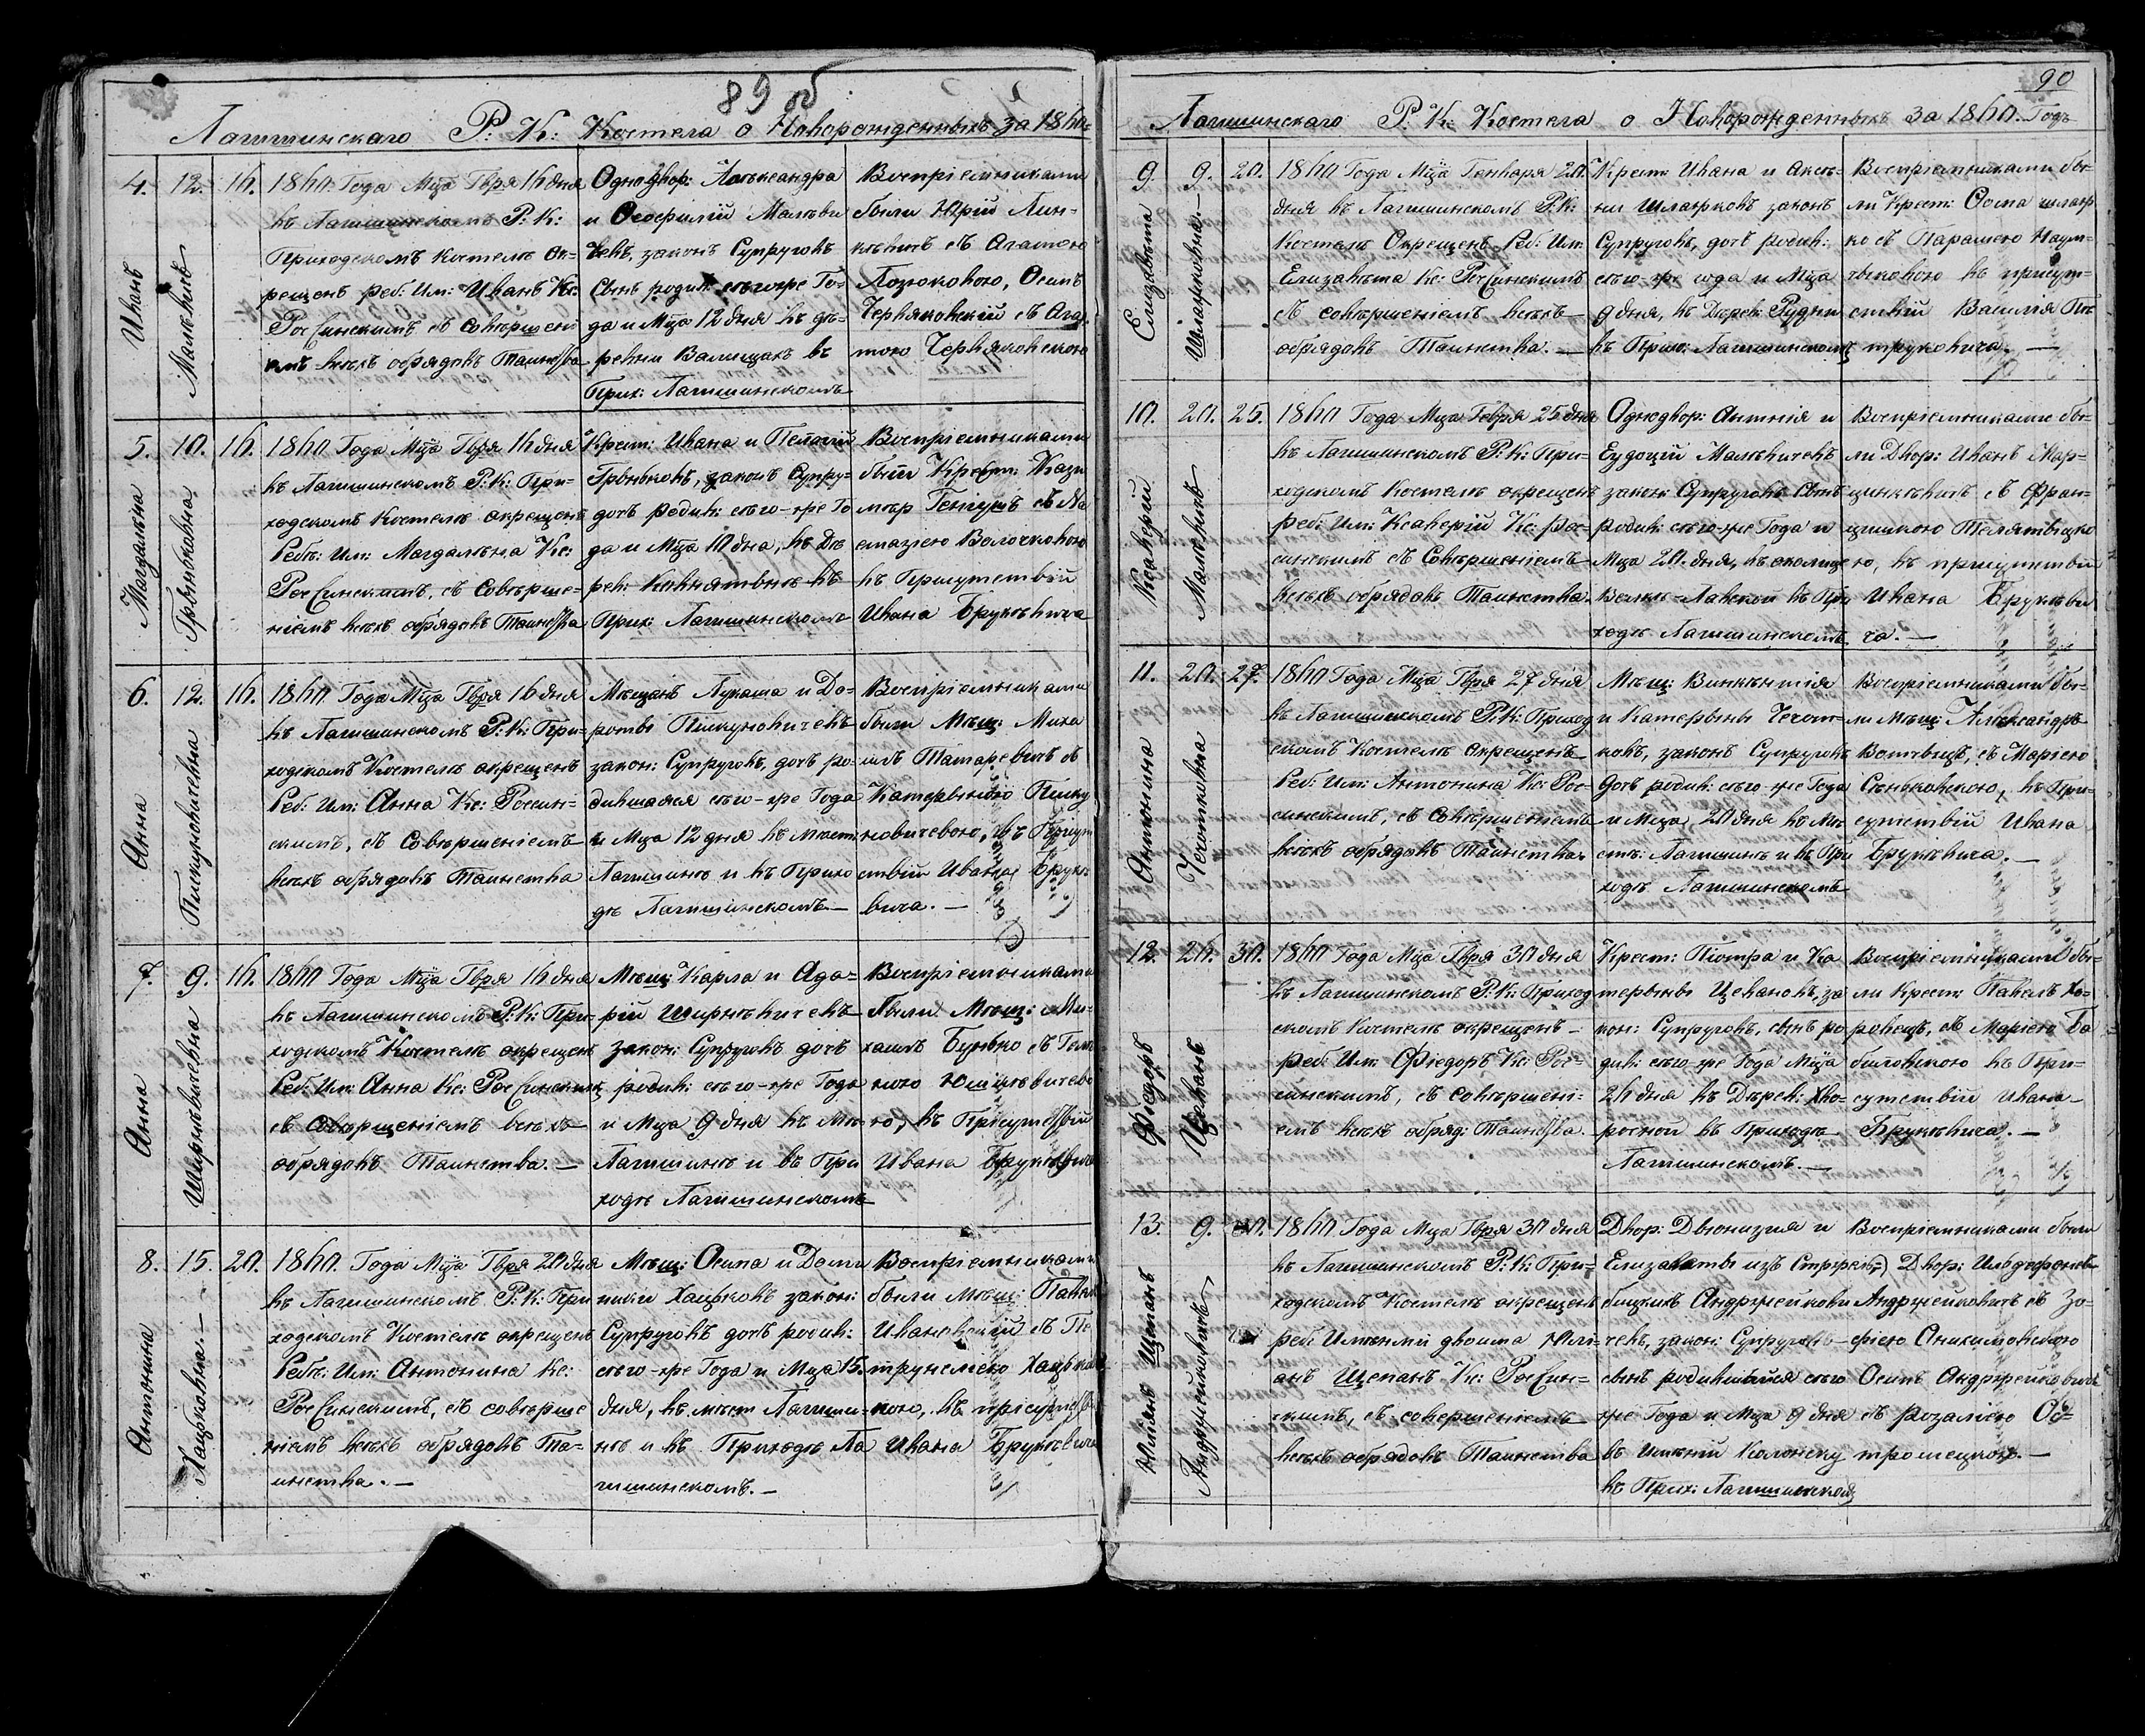 89 об
Лагишинскаго Р: К: Костела о Новорожденныхъ За 1860
4. 12. 16.
Иванъ
Малѣвичь
1860 Года Мца Гвря 16 дня
въ Лагишинскомъ Р: К:
Приходскомъ Костелѣ ок-
рещенъ реб: Им: Иванъ Кс:
Россинскимъ съ Совершені
емъ всѣхъ обрядовъ Таинства
Однодвор: Александра
и Ѳеофиліи Малѣви
чевъ, закон: Супруговъ
Сынъ родив: сего-же Го-
да и Мца 12 дня въ де-
ревни Валищахъ въ
Прих: Лагишинскомъ
Воспріемниками
были Юрій Лин-
кевичъ съ Агатою
Лозюковою, Осипъ
Червяковскій съ Ага
тою Червяковскою
5. 10. 16.
Магдалена
Гриньковна
1860 Года Мца Гвря 16 дня
въ Лагишинскомъ Р: К: При-
ходскомъ Костелѣ окрещенъ
Реб: Им: Магдалена Кс:
Россинскимъ, съ Соверше-
ніемъ всѣхъ обрядовъ Таинства
Крест: Ивана и Пелагіи
Гриньковъ, закон: Супру-
дочь родив: сего-же Го
да и Мца 10 дня, въ Де
рев:
Прих: Лагишинскомъ
Воспріемниками
были Крест: Кази
міръ съ
Волочковою
въ Присутствіи
Ивана Брукевича
6. 12. 16.
Анна
Пилкуновичевна
1860 Года Мца Гвря 16 дня
въ Лагишинскомъ Р: К: При-
ходскомъ Костелѣ окрещенъ
Реб: Им: Анна Кс: Россин-
скимъ, съ Совершеніемъ
всѣхъ обрядовъ Таинства
Мещанъ Лукаша и До-
роты Пилкуновичевъ
закон: Супруговъ, дочь ро-
дившаяся сего-же Года
и Мца 12 дня въ мѣст:
Лагишинѣ и въ Прихо
дѣ Лагишинскомъ —
Воспріемниками
были Мѣщ: Миха
илъ Татаревичъ съ
Катериною Пилку
новичевою, въ Присут
ствіи Ивана Бруке
вича. —
7. 9. 16.
Анна
Ширневичевна
1860 Года Мца Гвря 16 дня
въ Лагишинскомъ Р: К: При-
ходскомъ Костелѣ окрещенъ
Реб: Им: Анна Кс: Россинскимъ
съ Совершеніемъ всѣхъ
обрядовъ Таинства. —
Мѣщ: Карла и Ада-
ріи Ширневичевъ
закон: Супруговъ дочь
родив: сего-же Года
и Мца 9 дня въ Мѣс
Лагишинѣ и въ При
ходѣ Лагишинскомъ
Воспріемниками
были Мѣщ: Ми-
хаилъ Бунько съ
ю, въ Присутствіи
Ивана Брукевича
8. 15. 20.
Антонина
Хацьковна. —
1860. Года Мца Гвря 20 дня
въ Лагишинскомъ Р: К: При
ходскомъ Костелѣ окрещенъ
Реб: Им: Антонина Кс:
Россинскимъ, съ соверше
ніемъ всѣхъ обрядовъ Та-
инства. —
Мѣщ: Осипа и Доми
ники Хацьковъ закон:
Супруговъ дочь родив:
сего-же Года и Мца 15.
дня, въ мѣст Лагиши-
нѣ и въ Приходѣ Ла
гишинскомъ. —
Воспріемниками
были Мѣщ: Павелъ
Ивановскій съ Пе
трунелею Хацьков
ною, въ присутстві
Ивана Брукевича
90
Лагишинскаго Р: К: Костела о Новорожденныхъ за 1860. Годъ
9. 9. 20.
Елизавета
Шлапковна. —
1860 Года Мца Генваря 20.
дня въ Лагишинскомъ Р.К:
Костелѣ Окрещенъ Реб: Им:
Елизавета Кс: Россинскимъ
съ совершеніемъ всѣхъ —
обрядовъ Таинства. —
Крест Ивана и Аксе-
ни Шлапковъ закон
Супруговъ, дочь родив:
сего-же года и Мца
9 дня, въ Дерев: Рудни
въ Прих: Лагишинскомъ
Воспріемниками бы-
ли Крест: Ѳома Шлап
ко съ Парасею Наум-
чиковою въ присут-
ствіи Василія Пе
труковича. —
10. 20. 25.
Ксаверій
Малевичъ
1860 Года Мца Гевря 25 дня
въ Лагишинскомъ Р: К: При-
ходскомъ Костелѣ окрещенъ
реб: Им: Ксаверій Кс: Рос-
синскимъ съ Совершеніемъ
всѣхъ обрядовъ Таинства.
Однодвор: Антонія и
Еудоціи Малевичевъ
закон: Супруговъ Сынъ
родив: сего-же Года и
Мца 20. дня, въ околице
въ При
ходѣ Лагишинскомъ
Воспріемниками бы-
ли Двор: Иванъ Мар-
цинкевичъ съ Фран-
цишкою Телятицко
ю, въ присутствіи
Ивана Брукеви
ча. —
11. 20. 27.
Антонина
Чечотковна
1860 Года Мца Гвря 27 дня
въ Лагишинскомъ Р: К: Приход
скомъ Костелѣ окрещенъ
Реб: Им: Антонина Кс: Рос-
синскимъ, съ Совершеніемъ
всѣхъ обрядовъ Таинства.
Мѣщ: Винкентія
и Катерины Чечот-
ковъ, закон Супруговъ
дочь родив: сего-же Года
и Мца 20 дня въ Мѣ
стѣ: Лагишинѣ и въ При
ходѣ Лагишинскомъ
Воспріемниками бы-
ли Мѣщ: Александръ
съ Маріею
Сеньковскою, въ При-
сутствіи Ивана
Брукевича. —
12. 26. 30.
Фіедоръ
Цеванъ
1860 Года Мца Гвря 30 дня
въ Лагишинскомъ Р: К: Приход
скомъ Костелѣ окрещенъ —
реб: Им: Фіедоръ Кс: Рос-
синскимъ, съ совершені-
емъ всѣхъ обряд: Таинства.
Крест: Піотра и Ка
терины Цевановъ, за
кон: Супруговъ, сынъ ро
див: сего-же Года Мца
26 дня въ Дерев: Хво-
росной въ Приходѣ
Лагишинскомъ. —
Воспріемниками бы-
ли Крест: Павелъ Хо-
ровецъ, съ Маріею Ба
биловскою въ При-
сутствіи Ивана
Брукевича. —
13. 9. 30.
Юліянъ Щепанъ
Андржейковичъ
1860 Года Мца Гвря 30 дня
въ Лагишинскомъ Р: К: При-
ходскомъ Костелѣ окрещенъ
реб: Именми двоима Юли-
анъ Щепанъ Кс: Россин-
скимъ, съ совершеніемъ
всѣхъ обрядовъ Таинства
Двор: Діонизія и
Елизаветы изъ
Андржейкови
чевъ, закон: Супруговъ —
сынъ родившійся сего
же Года и Мца 9 дня
въ Имѣніи Колонску
въ Прих: Лагишинском
Воспріемниками были
Двор: Ильдефонсъ
Андржейковичъ съ Зо-
фіею Анихимовскою
Осипъ Андржейковичъ
съ Розаліею Ос-
тромецкою. —